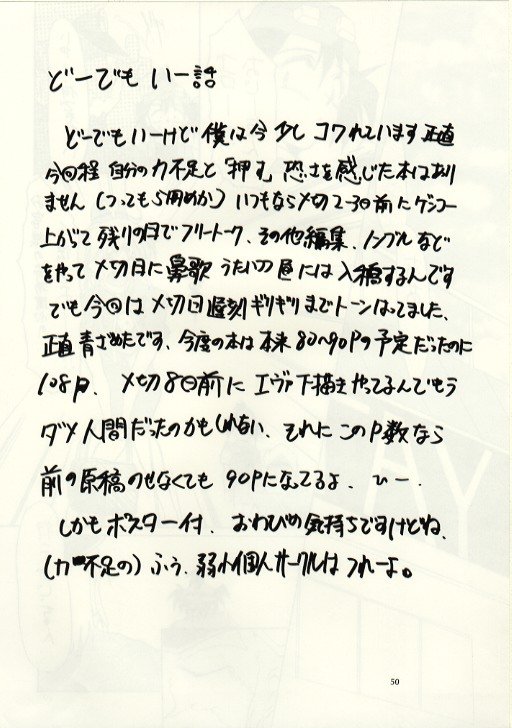 どーでもいー話
どーでもいーけど僕は今少しコワれています正直
今回程自分の力不足と「押す」恐さを感じた本はあり
ません(つっても5冊めか)いつもなら〆切2~3日前にゲンコー
上がって残りの日でフリートーク、その他編集、ノンブルなど
をやって〆切日に鼻歌うたいつつ には入稿するんです
でも今回は〆切日遅刻ギリギリまでトーンはってました、
正直青ざめたです、今度の本は本来80~90Pの予定だったのに
108P、〆切8日前にエヴァ下描きやってるんでもう
ダメ人間だったのかもしれない、それにこのP数なら
前の原稿のせなくても90Pになってるよ、ひー.
しかもポスター付、おわびの気持ちですけどね、
(力不足の)ふぅ、弱小個人サークルはつれーよ。
50